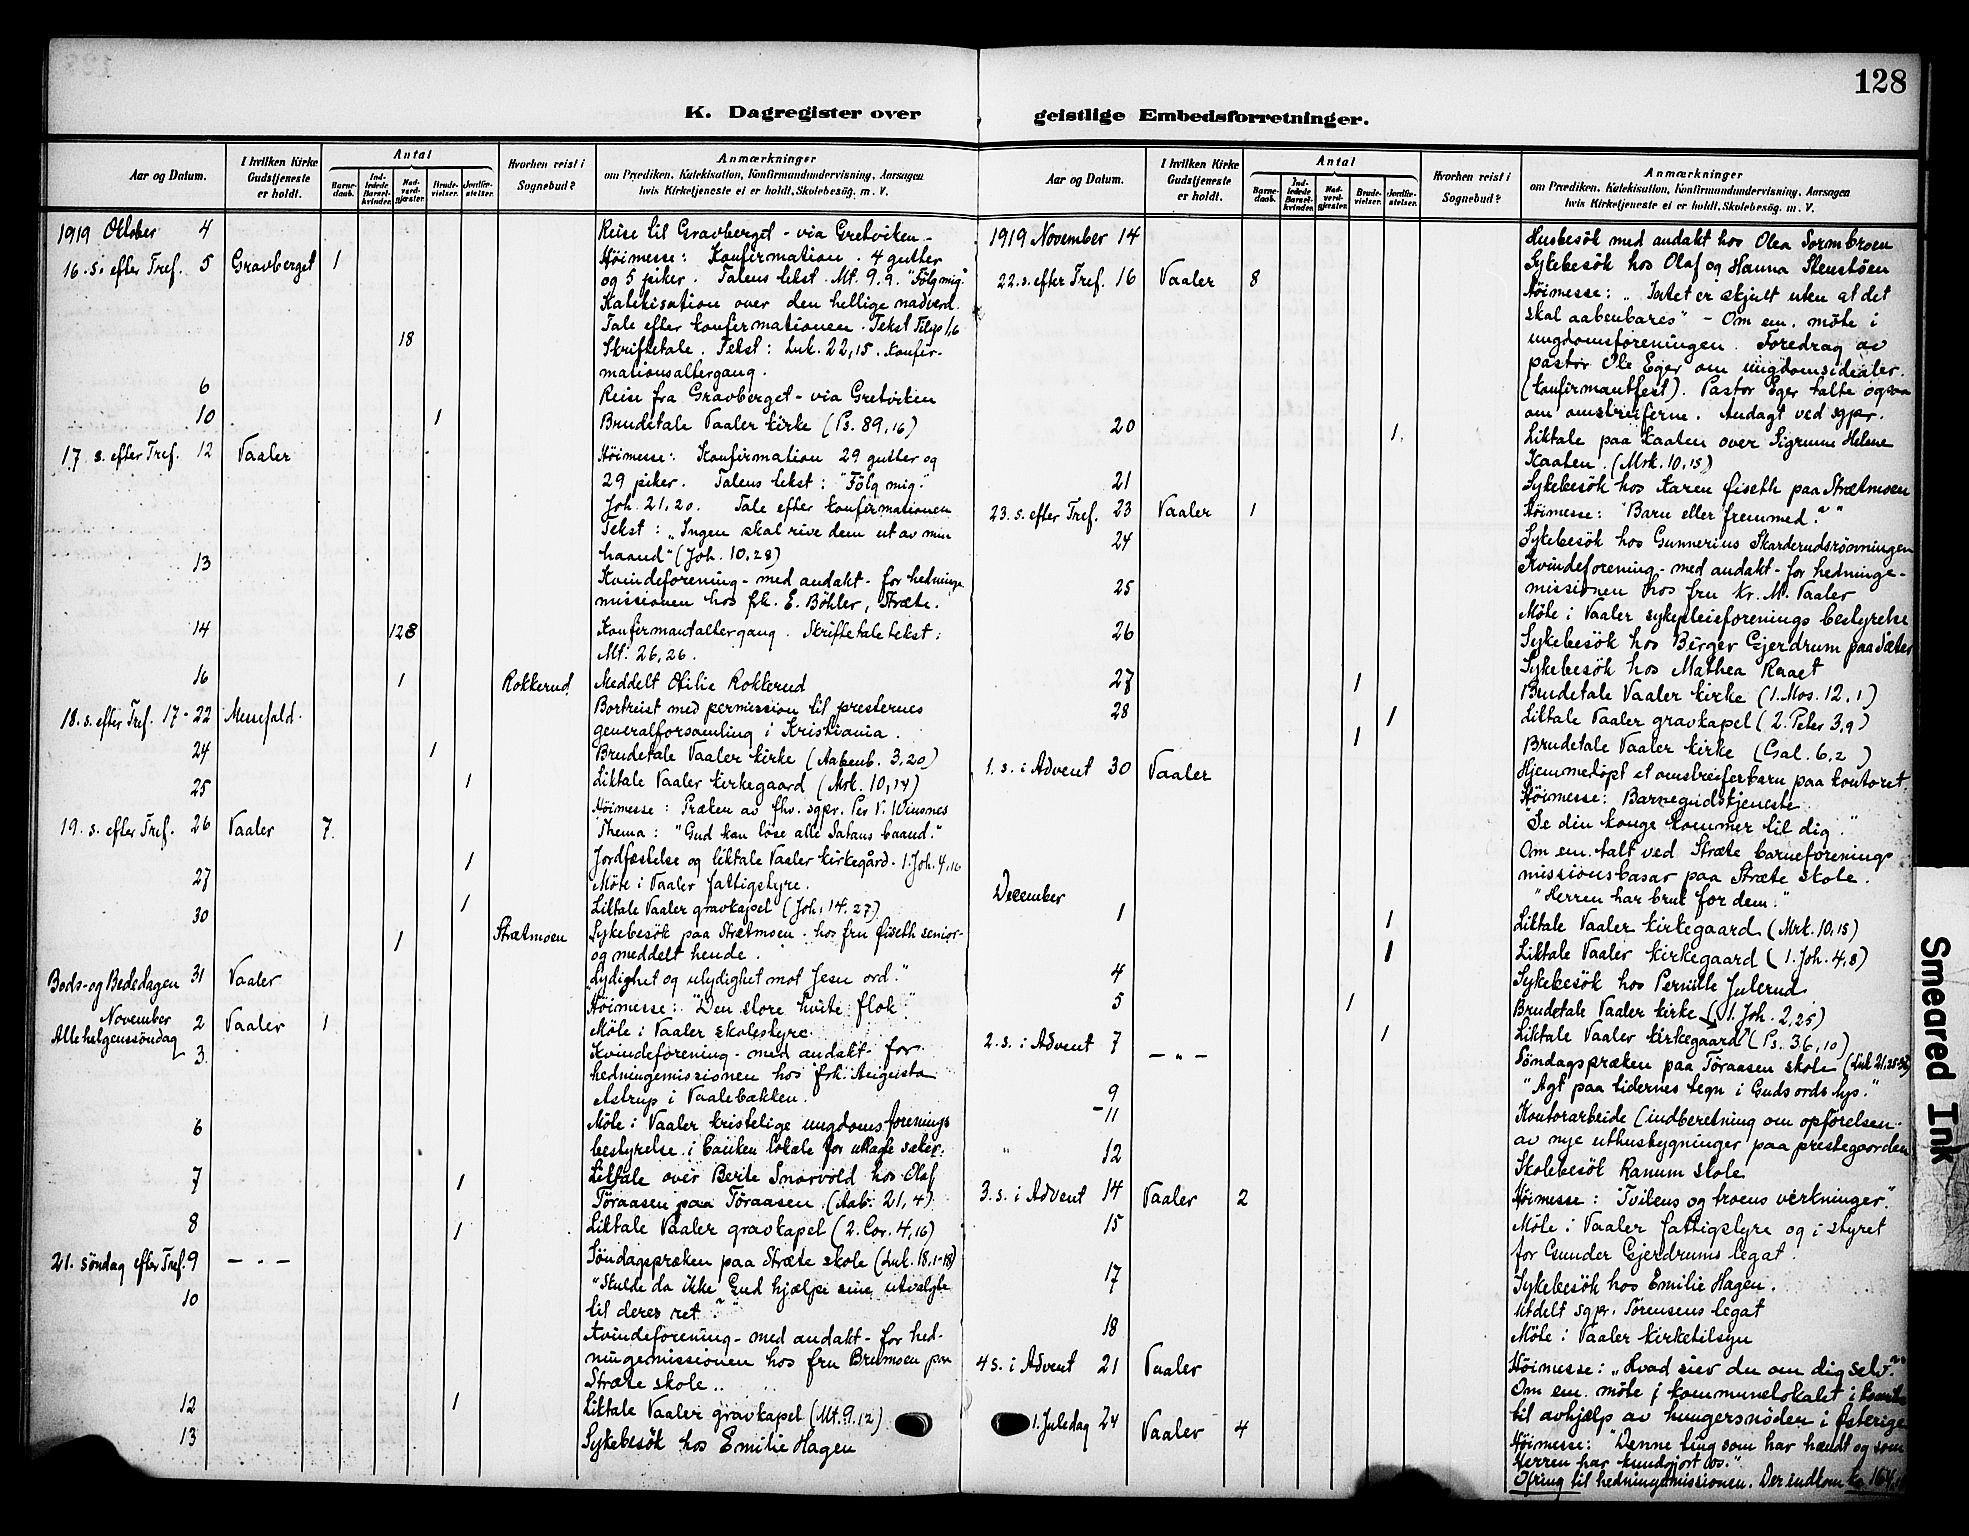 128
K. Dagregister over geistlige Embedsforretninger.
Aar og Datum.
I hvilken Kirke Gudstjeneste er holdt.
Antal
Barne-daab.
Ind-ledede Barsel-kvinder.
Nad-verd-gjæster.
Brude-vielser.
Jordfæ-stelser.
Hvorhen reist i Sognebud?
Anmærkninger
om Prædiken, Katekisation, Konfirmandundervisning, Aarsagen
hvis Kirketjeneste ei er holdt, Skolebesøg, m. V.
1919 Oktober 4 Reise til Gravberget - via Gretviken -
16. s. efter Tref. 5 Gravberget 1 Høimesse: Konfirmation. 4 gutter
og 5 piker. Talens tekst. Mt. 9.9. "Fölg mig"
Katekisation over den hellige nadverd.
Tale efter konfirmationen. Tekst Filip 1,6
18 Skriftetale. Tekst: Luk. 22,15. Konfir-
mationsaltergang.
6 Reise fra Gravberget - via Gretviken
10 1 Brudetale Vaaler kirke (Ps. 89,16)
17 s. efter Tref. 12 Vaaler Höimesse: Konfirmation 29 gutter og
29 piker. Talens tekst: "Fölg mig."
Joh. 21,20. Tale efter konfirmationen
Tekst: "Ingen skal rive dem ut av min
haand" (Joh. 10,28)
13 Kvindeforening - med andakt - for hedninge-
missionen hos frk. E. Böhler, Stræte.
14 128 Konfirmantaltergang. Skriftetale tekst:
Mt. 26,26.
16 1 Rokkerud Meddelt Otilie Rokkerud
18. s. efter Tref. 17-22 Messefald. Bortreist med permission til presternes
generalforsamling i Kristiania.
24 1 Brudetale Vaaler kirke (Aabenb. 3,20)
25 1 Liktale Vaaler kirkegaard (Mrk. 10,14)
19. s. efter Tref. 26 Vaaler 7 Höimesse: Præken av fhv. sgpr. Per V. Winsnes
Thema: "Gud kan löse alle Satans baand."
1 Jordfæstelse og liktale Vaaler kirkegård. 1. Joh. 4,16
27 Möte i Vaaler fattigstyre.
30 1 Liktale Vaaler gravkapel (Joh. 14.27)
1 Strætmoen Sykebesök paa Strætmoen hos fru Fiseth senior
og meddelt hende.
Bods- og Bededagen 31 Vaaler Lydighet og ulydighet mot Jesu ord."
November
Allehelgenssöndag 2 Vaaler 1 Höimesse: "Den store hvite flok."
3. Möte i Vaaler skolestyre
Kvindeforening - med andakt - for
hedningemissionen hos frk. Augusta
Astrup i Vaalebækken.
6 Möte i Vaaler kristelige ungdomsforenings
bestyrelse i bankens lokale for uttagte saker.
7 1 Liktale over Berte Snorvold hos Olaf
Töraasen paa Töraasen. (Aab. 21,4)
8 1 Liktale Vaaler gravkapel (2. Cor. 4,16)
21. söndag efter Tref. 9 — " — Söndagspræken paa Stræte skole (Luk. 18.1-18)
"Skulde da ikke Gud hjælpe sine utvalgte
til deres ret?"
10 Kvindeforening - med andakt - for hed-
ningemissionen hos fru Bremsen paa
Stræte skole.
12 1 Liktale Vaaler gravkapel (Mt. 9.12)
13 Sykebesök hos Emilie Hagen
Aar og Datum.
I hvilken Kirke Gudstjeneste er holdt.
Antal
Barne-daab.
Ind-ledede Barsel-kvinder.
Nad-verd-gjæster.
Brude-vielser.
Jordfæ-stelser.
Hvorhen reist i Sognebud?
Anmærkninger
om Prædiken, Katekisation, Konfirmandundervisning, Aarsagen
hvis Kirketjeneste ei er holdt, Skolebesøg, m. V.
1919 November 14 Husbesök med andakt hos Olea Sormbroen
Sykebesök hos Olaf og Hanna Stenstöen
22. s. efter Tref. 16 Vaaler 8 Höimesse: "Intet er skjult uten at det
skal aabenbares" - Om em. möte i
ungdomsforeningen. Foredrag av
pastor Ole Eger om ungdomsidealer.
(Konfirmantfest). Pastor Eger talte ogsaa
om omstreiferne. Andagt ved sgpr.
20 1 Liktale paa Kaaten over Sigrunn Helene
Kaaten. (Mrk. 10,15)
21 Sykebesök hos Karen Fiseth paa Strætmoen
23. s. efter Tref. 23 Vaaler 1 Höimesse: "Barn eller fremmed?"
24 Sykebesök hos Gunnerius Skarderudsrönningen
Kvindeforening - med andakt - for hedninge-
25 missionen hos fru Kr. M. Vaaler
Möte i Vaaler sykepleieforenings bestyrelse
26 Sykebesök hos Birger Gjerdrum paa Sæter
Sykebesök hos Mathea Raaet
27 1 Brudetale Vaaler kirke (1. Mos. 12,1)
28 1 Liktale Vaaler gravkapel (2. Peter 3,9)
1 Brudetale Vaaler kirke (Gal. 6,2)
Hjemmedöpt et omstreiferbarn paa kontoret.
1. s. i Advent 30 Vaaler Höimesse: Barnegudstjeneste
"Se din konge kommer til dig."
Om em. talt ved Stræte barneforenings
missionsbasar paa Stræte skole.
"Herren har bruk for dem."
December
1 1 Liktale Vaaler kirkegaard (Mrk. 10,15)
1 Liktale Vaaler kirkegaard (1. Joh. 4,8)
4 Sykebesök hos Pernille Julerud
5 1 Brudetale Vaaler kirke (1. Joh. 2,25)
2. s. i Advent 7 — " — 1 Liktale Vaaler kirkegaard (Ps. 36,10)
Söndagspræken paa Töraasen skole (Luk 21.25-36)
"Agt paa tidernes tegn i Guds ords lys."
9-11 Kontorarbeide (indberetning om opförelsen
av nye uthusbygninger paa prestegaarden
" 12 Skolebesök Ranum skole
3. s. i Advent 14 Vaaler 2 Höimesse: "Tvilens og troens virkninger."
15 Möte i Vaaler fattigstyre og i styret
for Gunder Gjerdrums legat.
17 Sykebesök hos Emilie Hagen.
Utdelt sgpr. Sörensens legat
18 Möte i Vaaler kirketilsyn
4 s. i Advent 21 Vaaler Höimesse: "Hvad siev du om dig selv?"
Om em. möte i kommunelokalet i
til avhjælp av hungersnöden i Österige
1. Juledag 24 Vaaler 4 Höimesse: "Denne ting som har hændt og som
Herren har kundgjort os."
Ofring til hedningemissionen. Der indkom kr. 164,
Smeared Ink